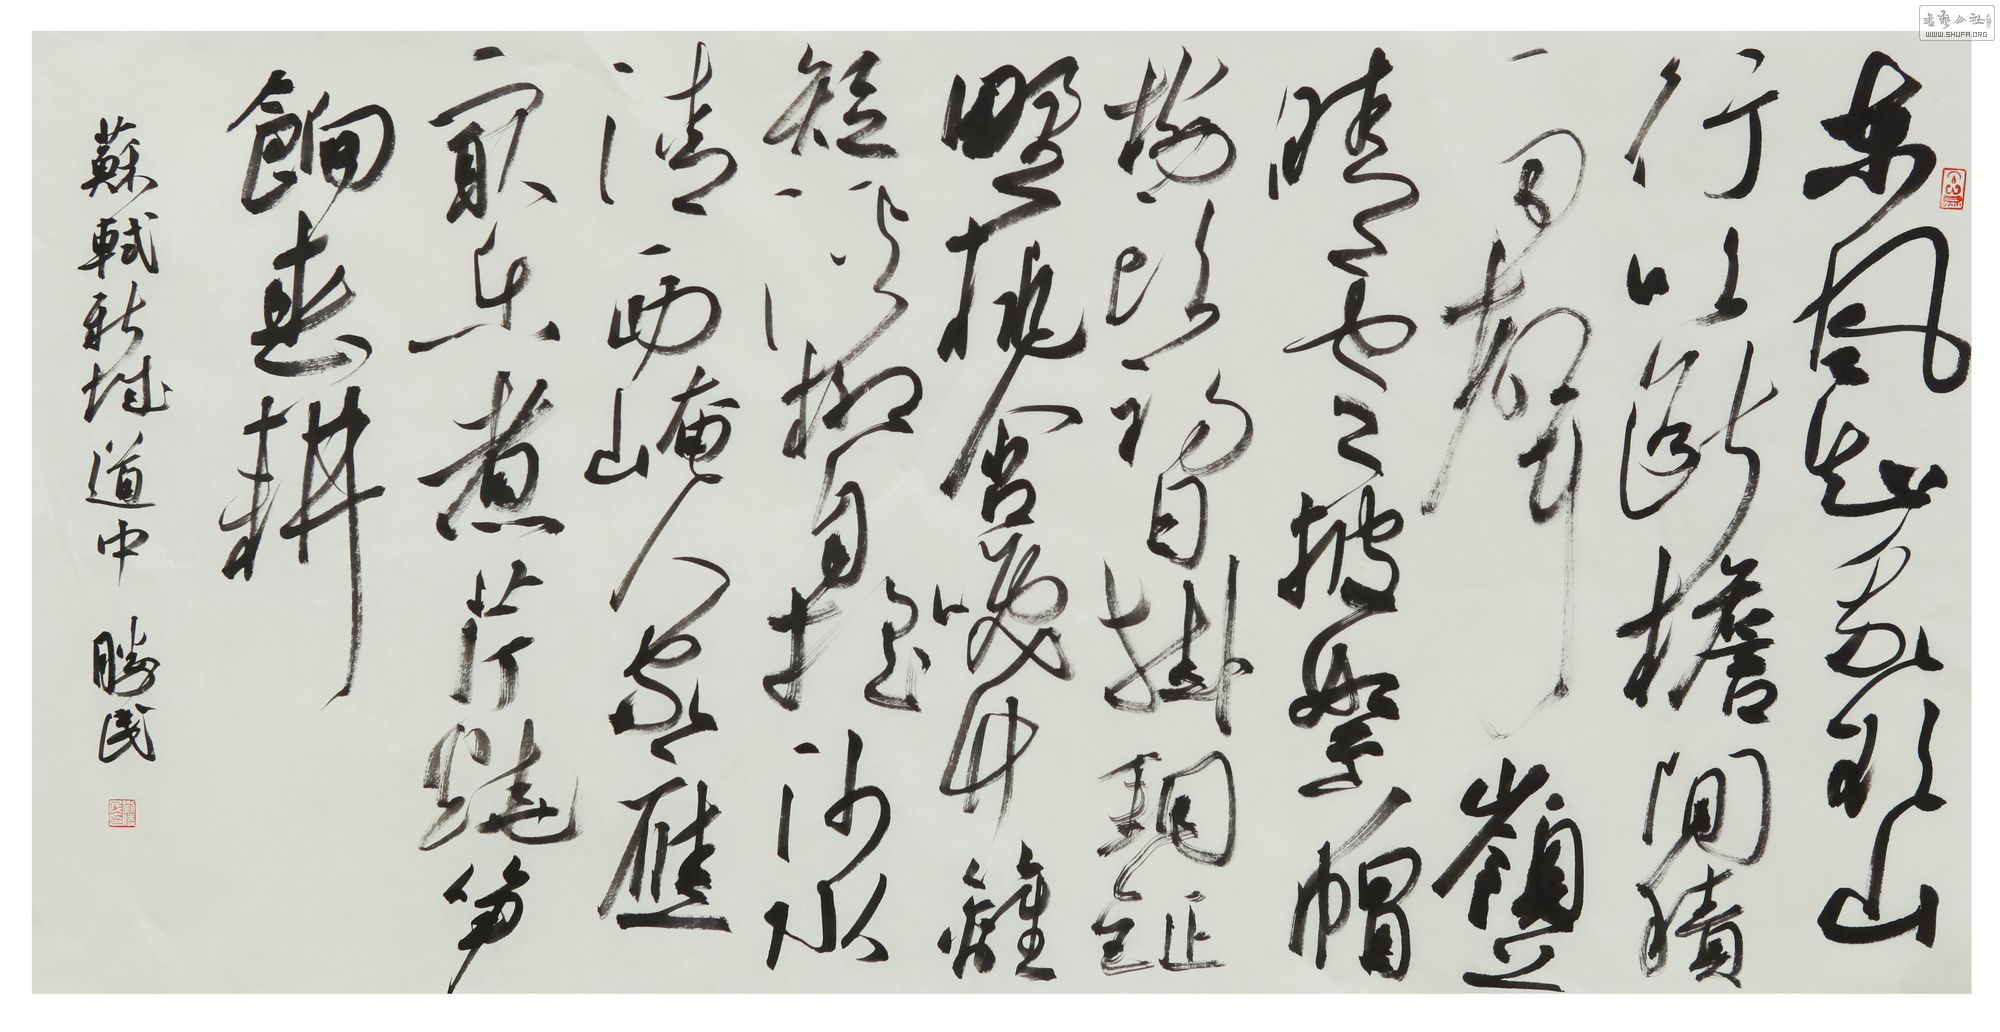 東風知我欲山
行吹斷檐間積
雨聲嶺上
晴雲披絮帽
樹頭初日掛銅鉦
野桃含笑竹籬
短溪柳自搖沙水
清西崦人家應
最樂煮芹燒筍
餉春耕
蘇軾新城道中 勝民
書藝公社
WWW.SHUFA.ORG